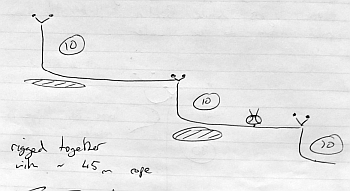 10
10
10
rigged together
with ~ 45m rope